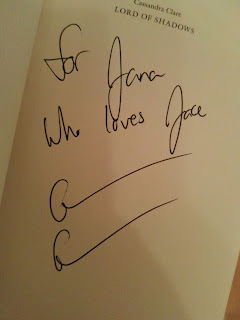 Cassandra Clare
LORD OF SHADOWS
for Jana
who loves Jace